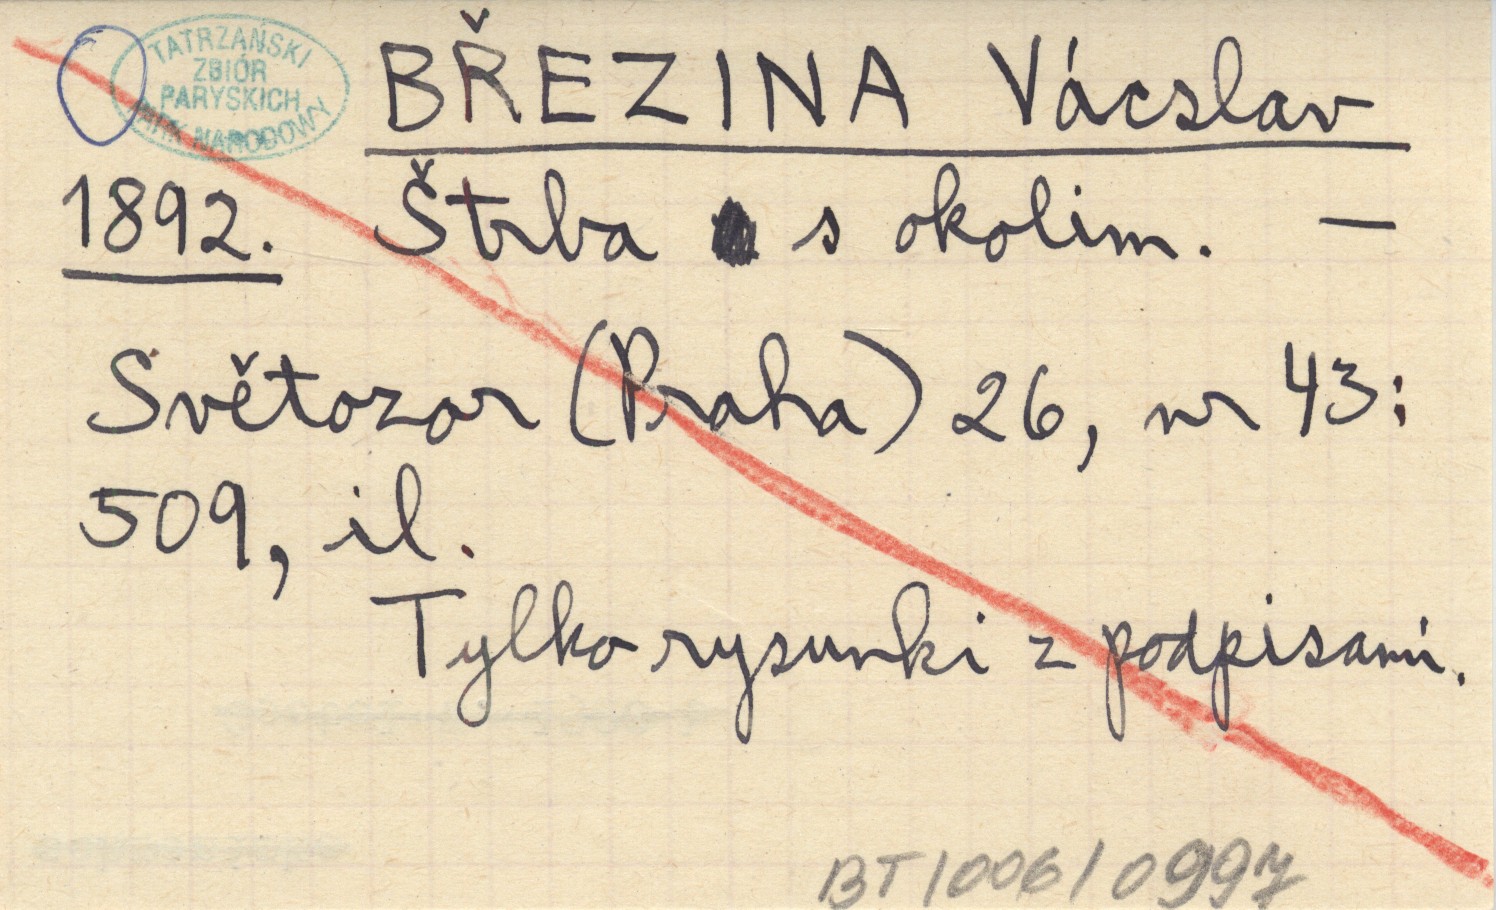 TATRZAŃSKI
ZBIÓR
PARYSKICH
PARK NARODOWY
BŘEZINA Vácslav
1892. Štrba s okolim. —
Světozor (Praha) 26, nr 43:
509, il.
Tylko rysunki z podpisami.
BT/006/0997